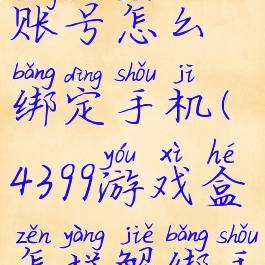 账号怎么
bǎng dìng shǒu jī
绑定手机(
yóu xì hé
4399游戏盒
zěn yàng jiě bǎng shǒu
怎样解绑手